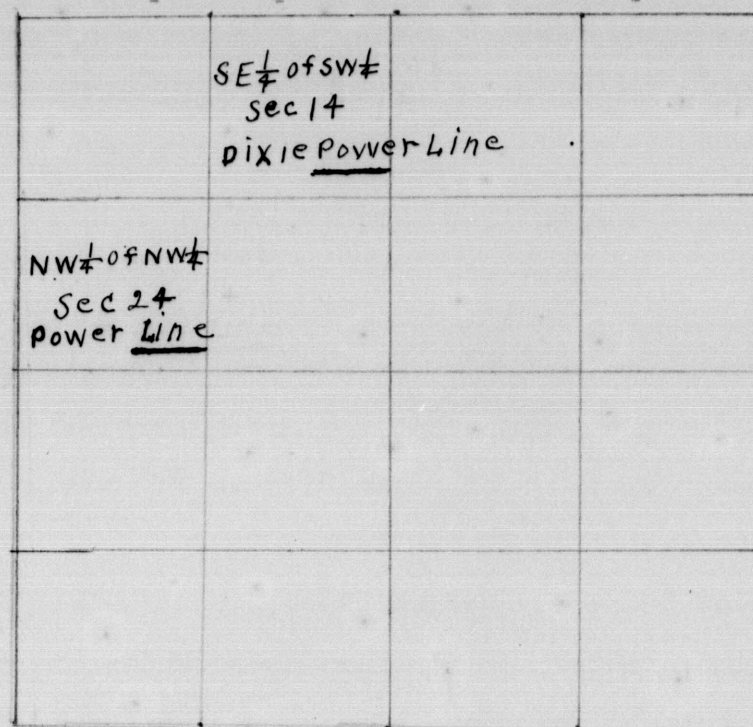 SE¼ of SW¼
Sec 14
Dixie Power Line
NW¼ of NW¼
Sec 24
Power Line